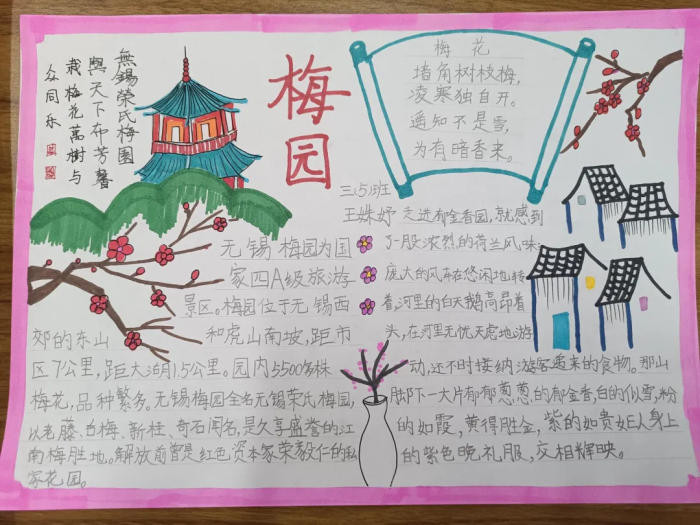 無錫榮氏梅園
與天下布芳馨
栽梅花萬樹与
众同乐
梅园
梅花
墙角树枝梅，
凌寒独自开。
遥知不是雪，
为有暗香来。
三(5)班
王姝妤
无锡梅园为国
家四A级旅游
景区。梅园位于无锡西
郊的东山和虎山南坡，距市
区7公里，距太湖1.5公里。园内5500多株
梅花，品种繁多。无锡梅园全名无锡荣氏梅园，
以老藤、白梅、新桂、奇石闻名，是久享盛誉的江
南梅胜地。解放前曾是红色资本家荣毅仁的私
家花园。
走进郁金香园，就感到
了一股浓烈的荷兰风味：
庞大的风车在悠闲地转
着，河里的白天鹅高昂着
头，在河里无忧无虑地游
动，还不时接纳游客递来的食物。那山
脚下一大片郁郁葱葱的郁金香，白的似雪，粉
的如霞，黄得胜金，紫的如贵妃人身上
的紫色晚礼服，交相辉映。